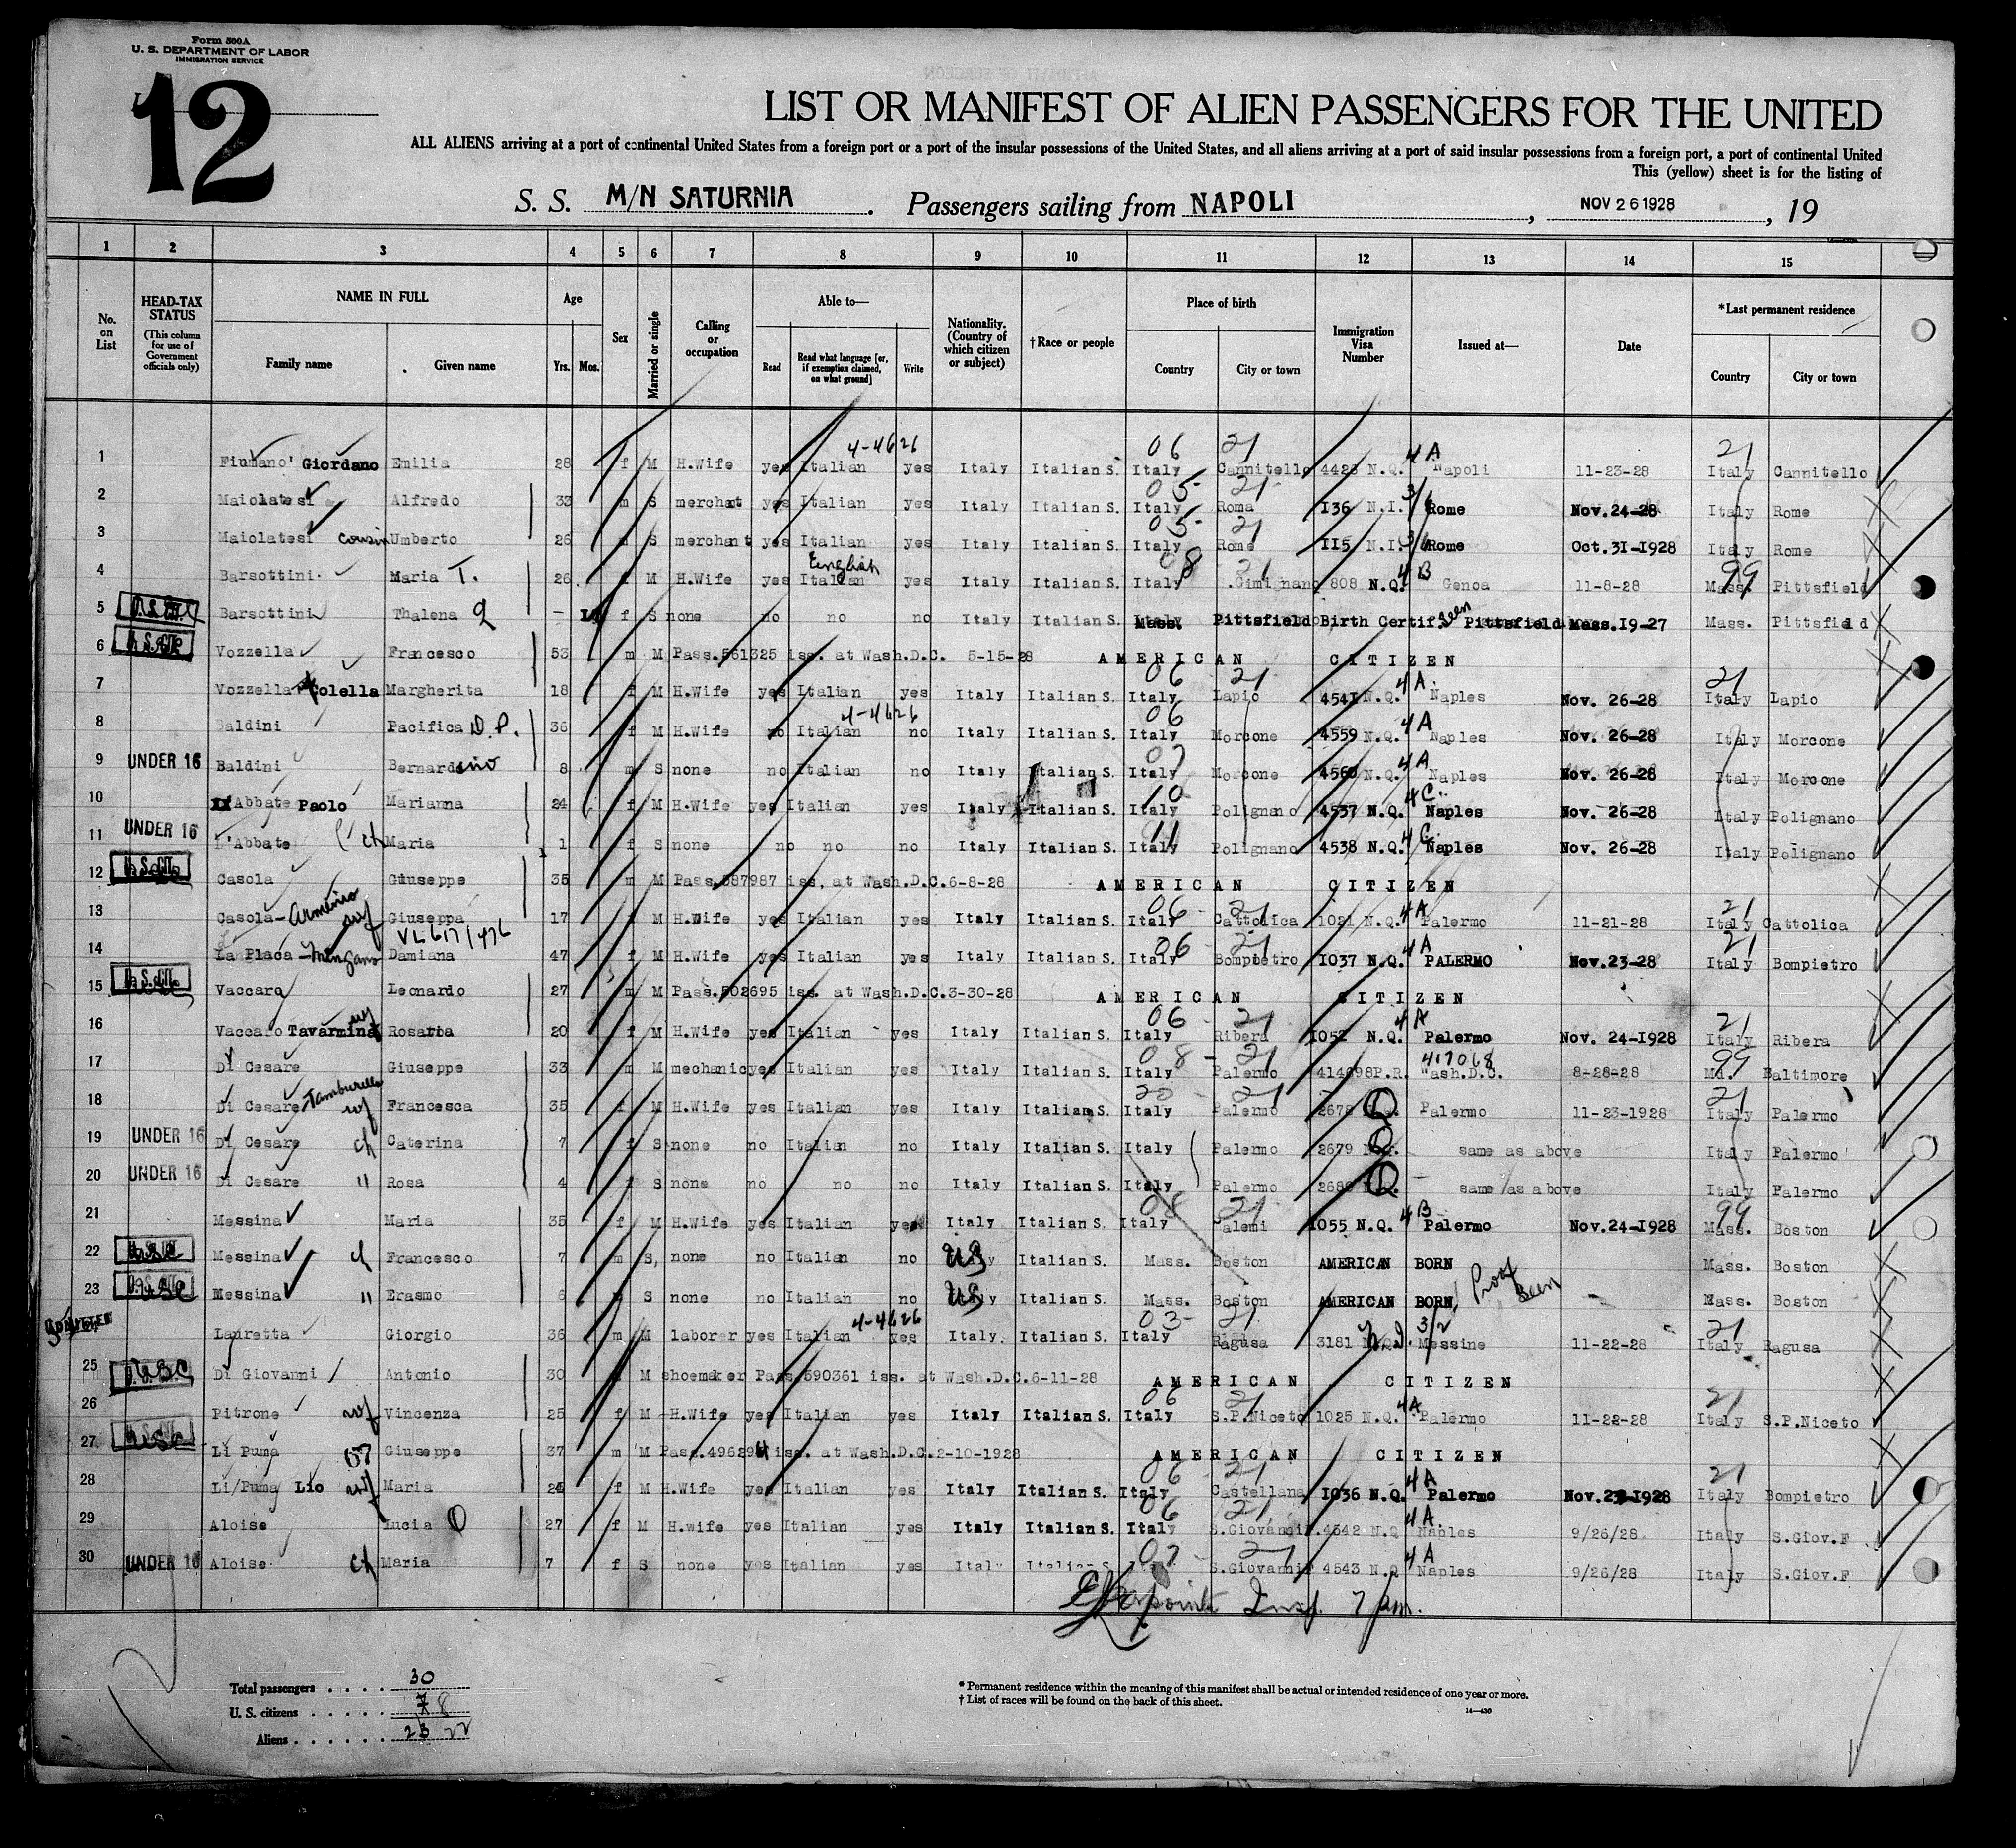 Form 500A
U. S. DEPARTMENT OF LABOR
IMMIGRATION SERVICE
12
LIST OR MANIFEST OF ALIEN PASSENGERS FOR THE UNITED
ALL ALIENS arriving at a port of continental United States from a foreign port or a port of the insular possessions of the United States, and all aliens arriving at a port of said insular possessions from a foreign port, a port of continental United
This (yellow) sheet is for the listing of
S. S. M/N SATURNIA. Passengers sailing from NAPOLI, NOV 26 1928, 19
1 2 3 4 5 6 7 8 9 10 11 12 13 14 15
No. on List
HEAD-TAX STATUS (This column for use of Government officials only)
NAME IN FULL Family name Given name
Age Yrs. Mos.
Sex
Married or single
Calling or occupation
Able to— Read Read what language [or, if exemption claimed, on what ground] Write
Nationality. (Country of which citizen or subject)
†Race or people
Place of birth Country City or town
Immigration Visa Number
Issued at—
Date
*Last permanent residence Country City or town
4-4626 06 21 4A 21
1 Fiumano' Giordano Emilia 28 f M H.Wife yes Italian yes Italy Italian S. Italy Cannitello N.Q. Napoli 11-23-28 Italy Cannitello
05 21 3/
2 Maiolatesi Alfredo 33 m S merchant yes Italian yes Italy Italian S. Italy Roma 136 N.I. Rome Nov.24-28 Italy Rome
05 21
3 Maiolatesi cousin Umberto 26 m S merchant yes Italian yes Italy Italian S. Italy Rome 115 N.I. Rome Oct.31-1928 Italy Rome
English 08 21 4B 99
4 Barsottini Maria T. 26 f M H.Wife yes Italian yes Italy Italian S. Italy .Gimignano 808 N.Q. Genoa 11-8-28 Mass. Pittsfield
5 Barsottini Thalena - f S none no no no Italy Italian S. Mass. Pittsfield Birth Certif. seen Pittsfield Mass. 19-27 Mass. Pittsfield
6 Vozzella Francesco 53 m M Pass.561325 iss. at Wash.D.C. 5-15-28 AMERICAN CITIZEN
06 21 4A 21
7 Vozzella Colella Margherita 18 f M H.Wife yes Italian yes Italy Italian S. Italy Lapio 4541 N.Q. Naples Nov. 26-28 Italy Lapio
4-4626 06 4A
8 Baldini Pacifica D.P. 36 f M H.Wife no Italian no Italy Italian S. Italy Morcone 4559 N.Q. Naples Nov. 26-28 Italy Morcone
07 4A
9 UNDER 16 Baldini Bernardino 8 m S none no Italian no Italy Italian S. Italy Morcone 4560 N.Q. Naples Nov. 26-28 Italy Morcone
10 4C
10 Abbate Paolo Marianna 24 f M H.Wife yes Italian yes Italy Italian S. Italy Polignano 4537 N.Q. Naples Nov. 26-28 Italy Polignano
11 4C
11 UNDER 16 L'Abbate ch Maria 1 f S none no no no Italy Italian S. Italy Polignano 4538 N.Q. Naples Nov. 26-28 Italy Polignano
12 Casola Giuseppe 35 m M Pass.587987 iss. at Wash.D.C.6-8-28 AMERICAN CITIZEN
06 21 4A 21
13 Casola - Armenio wf Giuseppa 17 f M H.Wife yes Italian yes Italy Italian S. Italy Cattolica 1021 N.Q. Palermo 11-21-28 Italy Cattolica
06 21 4A 21
14 La Placa - Mingano Damiana 47 f M H.Wife yes Italian yes Italy Italian S. Italy Bompietro 1037 N.Q. PALERMO Nov.23-28 Italy Bompietro
15 Vaccaro Leonardo 27 m M Pass.502695 iss. at Wash.D.C.3-30-28 AMERICAN CITIZEN
wf 06 21 4A 21
16 Vaccaro Tavarmina Rosaria 20 f M H.Wife yes Italian yes Italy Italian S. Italy Ribera 1052 N.Q. Palermo Nov. 24-1928 Italy Ribera
08 - 21 417068 99
17 Di Cesare Giuseppe 33 m M mechanic yes Italian yes Italy Italian S. Italy Palermo P.R. Wash.D.C. 8-28-28 Md. Baltimore
20 - 21 21
18 Di Cesare Tamburello wf Francesca 35 f M H.Wife yes Italian yes Italy Italian S. Italy Palermo 2678 Q Palermo 11-23-1928 Italy Palermo
19 UNDER 16 Di Cesare ch Caterina 7 f S none no Italian no Italy Italian S. Italy Palermo 2679 Q same as above Italy Palermo
20 UNDER 16 Di Cesare " Rosa 4 f S none no no no Italy Italian S. Italy Palermo Q same as above Italy Palermo
08 21 4B 99
21 Messina Maria 35 f M H.Wife yes Italian yes Italy Italian S. Italy Salemi 1055 N.Q. Palermo Nov.24-1928 Mass. Boston
22 Messina ch Francesco 7 m S none no Italian no US Italian S. Mass. Boston AMERICAN BORN Mass. Boston
23 Messina " Erasmo 6 m S none no Italian no US Italian S. Mass. Boston AMERICAN BORN Proof Seen Mass. Boston
4-4626 03 - 21 3/2 21
ADMITTED Lauretta Giorgio 36 m M laborer yes Italian yes Italy Italian S. Italy Ragusa 3181 Messine 11-22-28 Italy Ragusa
25 Di Giovanni Antonio 30 M shoemaker Pass.590361 iss. at Wash.D.C.6-11-28 AMERICAN CITIZEN
06 21 4A 21
26 Pitrone wf Vincenza 25 f M H.Wife yes Italian yes Italy Italian S. Italy S.P.Niceto 1025 N.Q. Palermo 11-22-28 Italy S.P.Niceto
27 Li Puma Giuseppe 37 m M Pass.496294 iss. at Wash.D.C.2-10-1928 AMERICAN CITIZEN
06 21 4A 21
28 Li Puma Lio wf Maria f M H.Wife yes Italian yes Italy Italian S. Italy Castellana 1036 N.Q. Palermo Nov.23-1928 Italy Bompietro
06 21 4A
29 Aloise Lucia 27 f M H.wife yes Italian yes Italy Italian S. Italy S.Giovanni 4542 N.Q Naples 9/26/28 Italy S.Giov.F
07 21 4A
30 UNDER 16 Aloise ch Maria 7 f S none yes Italian yes Italy Italian S S.Giovanni 4543 N.Q Naples 9/26/28 Italy S.Giov.F
Insp. 7 pm.
Total passengers . . . . 30
U. S. citizens . . . . . 7 8
Aliens . . . . . . 23 22
* Permanent residence within the meaning of this manifest shall be actual or intended residence of one year or more.
† List of races will be found on the back of this sheet.
14—430